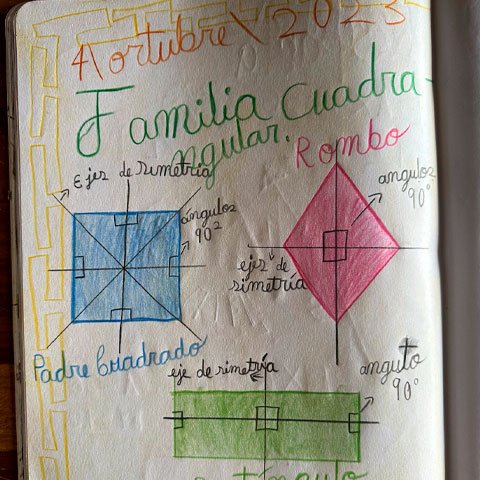 4\ortubre\2023
Familia Cuadra-
ngular.
Rombo
Ejes de simetría
ángulos
90°
angulos
90°
ejes de
simetría
Padre Cuadrado
eje de simetría
anguto
90°